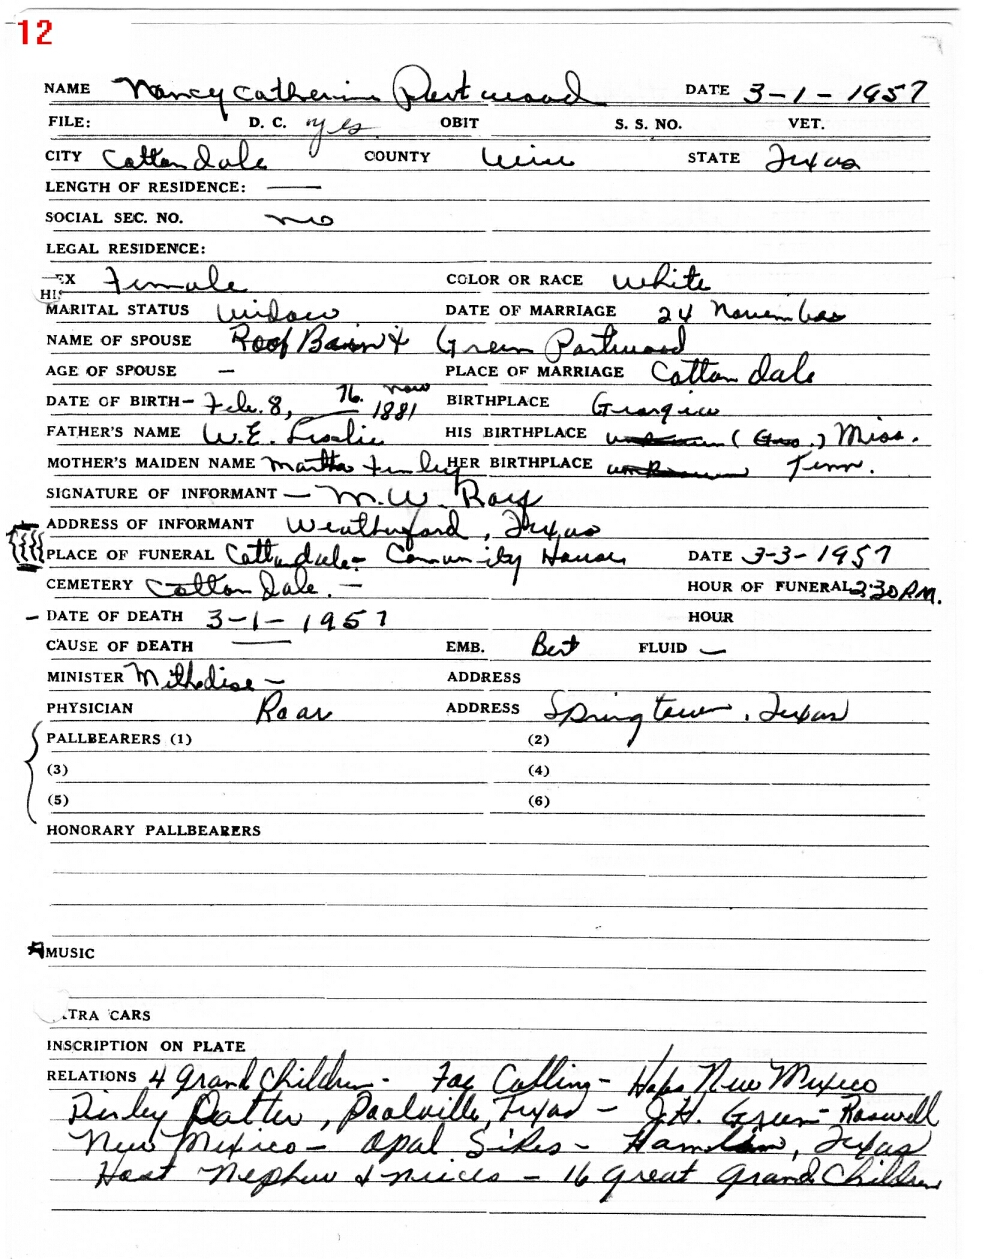 12
NAME Nancy Catherine Portwood DATE 3-1-1957
FILE: D. C. yes OBIT S. S. NO. VET.
CITY Cottondale COUNTY Wise STATE Texas
LENGTH OF RESIDENCE: —
SOCIAL SEC. NO. no
LEGAL RESIDENCE:
EX Female COLOR OR RACE White
HIS
MARITAL STATUS Widow DATE OF MARRIAGE 24 November
NAME OF SPOUSE Roof & Green Portwood
AGE OF SPOUSE — PLACE OF MARRIAGE Cottondale
DATE OF BIRTH- Feb. 8, 76 now 1881 BIRTHPLACE Georgia
FATHER'S NAME W.E. Leslie HIS BIRTHPLACE unknown (Geo.) Miss.
MOTHER'S MAIDEN NAME Martha Finley HER BIRTHPLACE unknown Tenn.
SIGNATURE OF INFORMANT — M.W. Ray
ADDRESS OF INFORMANT Weatherford, Texas
PLACE OF FUNERAL Cottondale- Comunity House DATE 3-3-1957
CEMETERY Cottondale. — HOUR OF FUNERAL 2:30 P.M.
- DATE OF DEATH 3-1-1957 HOUR
CAUSE OF DEATH — EMB. Bert FLUID —
MINISTER Methodise — ADDRESS
PHYSICIAN Roar ADDRESS Springtown, Texas
PALLBEARERS (1) (2)
(3) (4)
(5) (6)
HONORARY PALLBEARERS
MUSIC
TRA CARS
INSCRIPTION ON PLATE
RELATIONS 4 Grand Children - Fay Colling - New Mexico
Finley, Poolville, Texas - J.H. Green - Roswell
New Mexico - Opal Sikes - Hamlin, Texas
Host Nephew & nieces - 16 great Grand Children